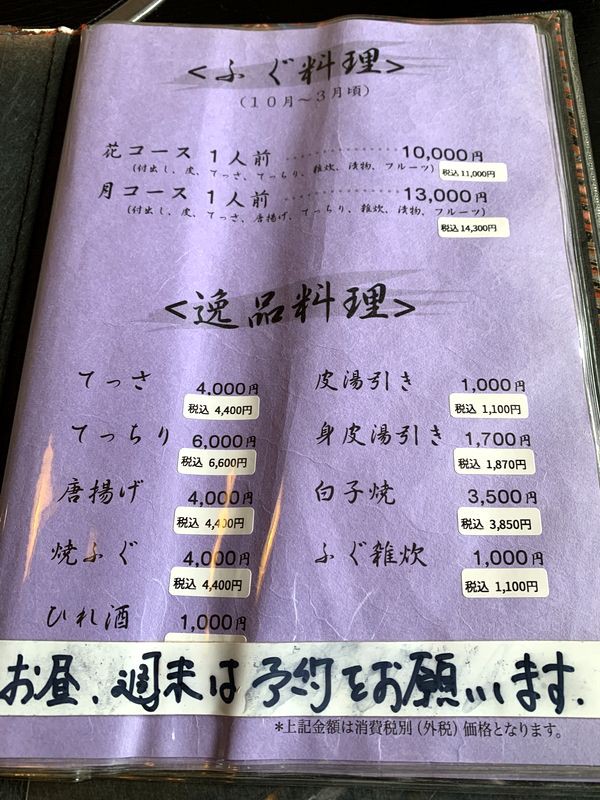 <ふぐ料理>
(10月～3月頃)
花コース 1人前 ………… 10,000円
(付出し、皮、てっさ、てっちり、雑炊、漬物、フルーツ) 税込 11,000円
月コース 1人前 ………… 13,000円
(付出し、皮、てっさ、唐揚げ、てっちり、雑炊、漬物、フルーツ)
税込 14,300円
<逸品料理>
てっさ 4,000円 皮湯引き 1,000円
税込 4,400円 税込 1,100円
てっちり 6,000円 身皮湯引き 1,700円
税込 6,600円 税込 1,870円
唐揚げ 4,000円 白子焼 3,500円
税込 4,400円 税込 3,850円
焼ふぐ 4,000円 ふぐ雑炊 1,000円
税込 4,400円 税込 1,100円
ひれ酒 1,000円
お昼、週末は予約をお願いします.
*上記金額は消費税別(外税)価格となります。